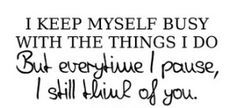 I KEEP MYSELF BUSY
WITH THE THINGS I DO
But everytime I pause,
I still think of you.